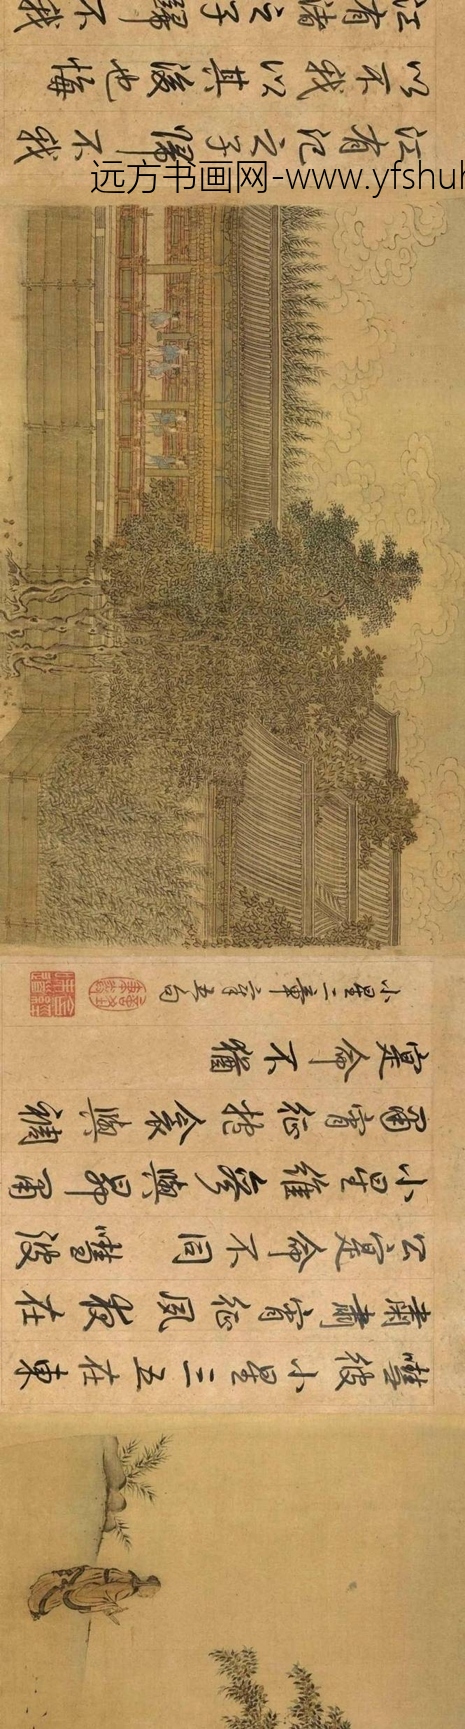 嘒彼小星三五在東
肅肅宵征夙夜在
公寔命不同 嘒彼
小星維參與昴肅
肅宵征抱衾與裯
寔命不猶
小星二章章五句
江有汜之子歸不我
以不我以其後也悔
江有渚之子歸不我
远方书画网-www.yfshuh